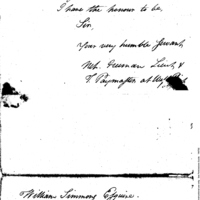 I have the honour to be,
Sir,
Your very humble Servant,
Freeman Lieut. &
Paymaster at
William Simmons Esquire.